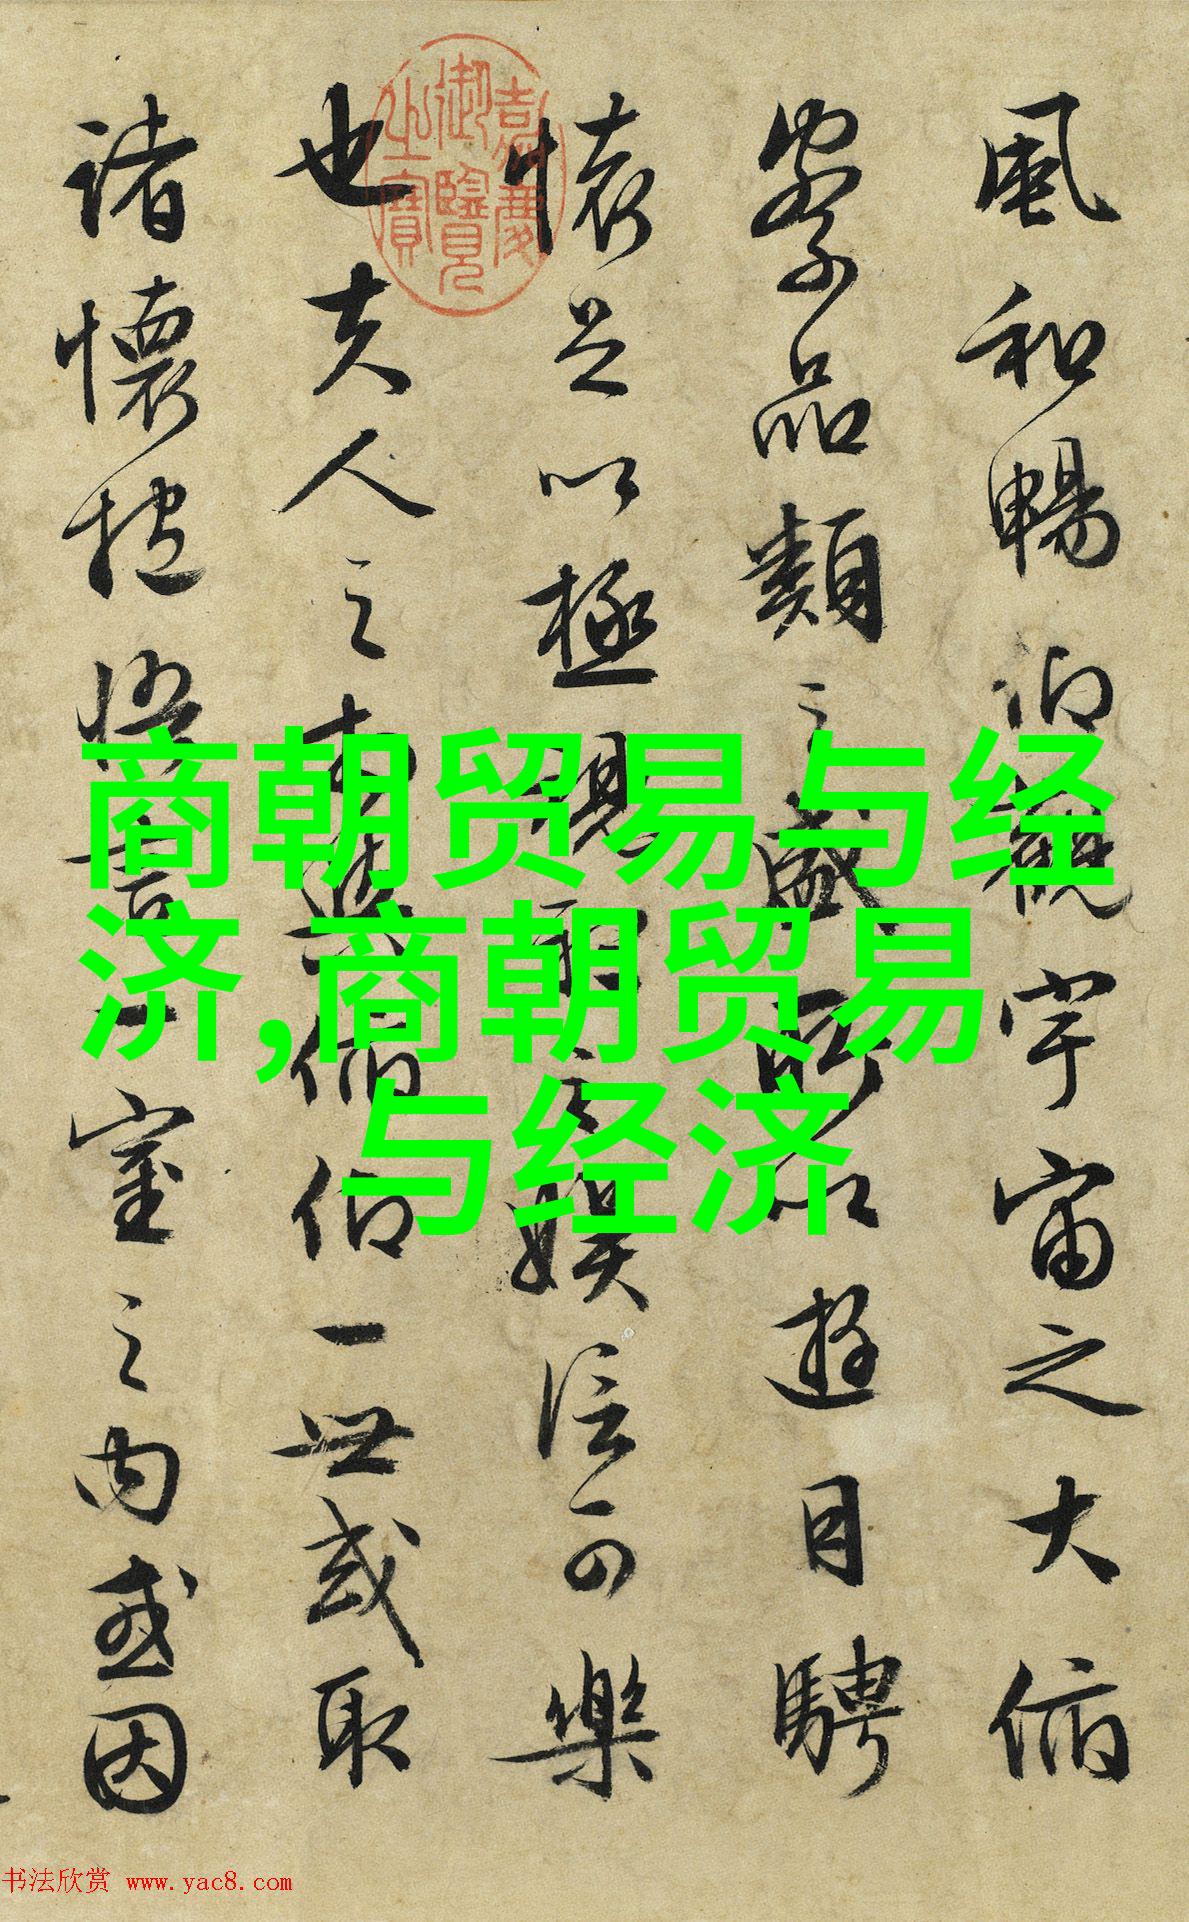 風和暢仰觀宇宙之大俯
察品類之盛所以遊目騁
懷足以極視聽之娛信可樂
也夫人之相與俯仰一世或取
諸懷抱悟言一室之內或因
嘉慶
御覽
之寶
商朝贸易与经
济,商朝贸易
与经济
书法欣赏 www.yac8.com